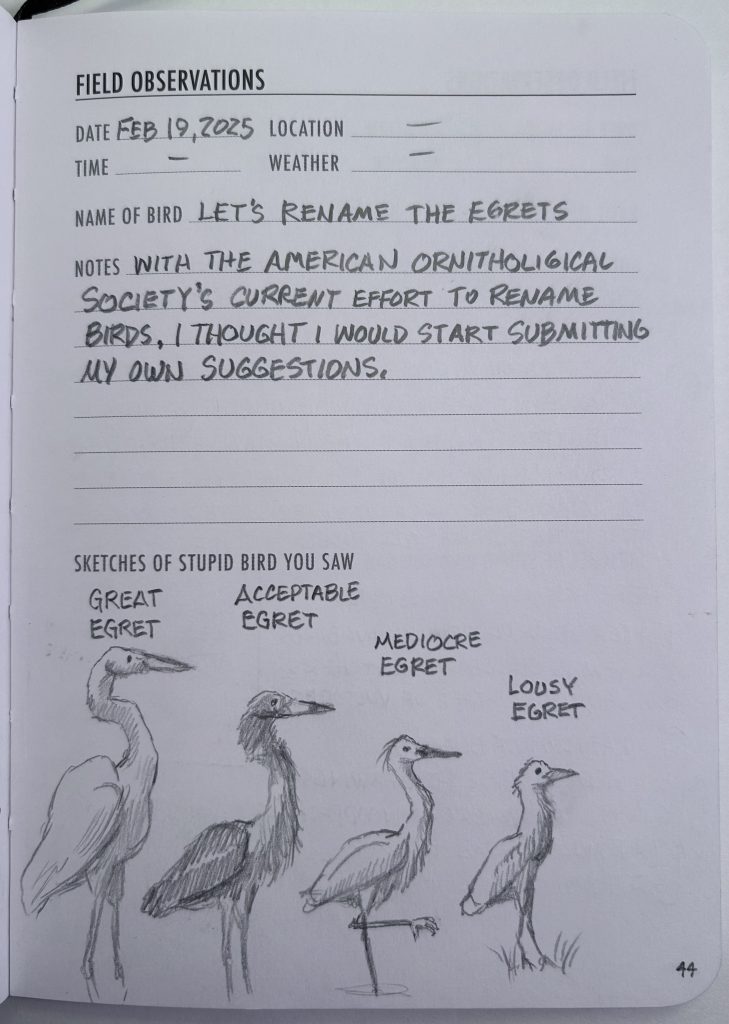 FIELD OBSERVATIONS
DATE FEB 19, 2025 LOCATION —
TIME — WEATHER —
NAME OF BIRD LET'S RENAME THE EGRETS
NOTES WITH THE AMERICAN ORNITHOLIGICAL
SOCIETY'S CURRENT EFFORT TO RENAME
BIRDS, I THOUGHT I WOULD START SUBMITTING
MY OWN SUGGESTIONS.
SKETCHES OF STUPID BIRD YOU SAW
GREAT
EGRET
ACCEPTABLE
EGRET
MEDIOCRE
EGRET
LOUSY
EGRET
44